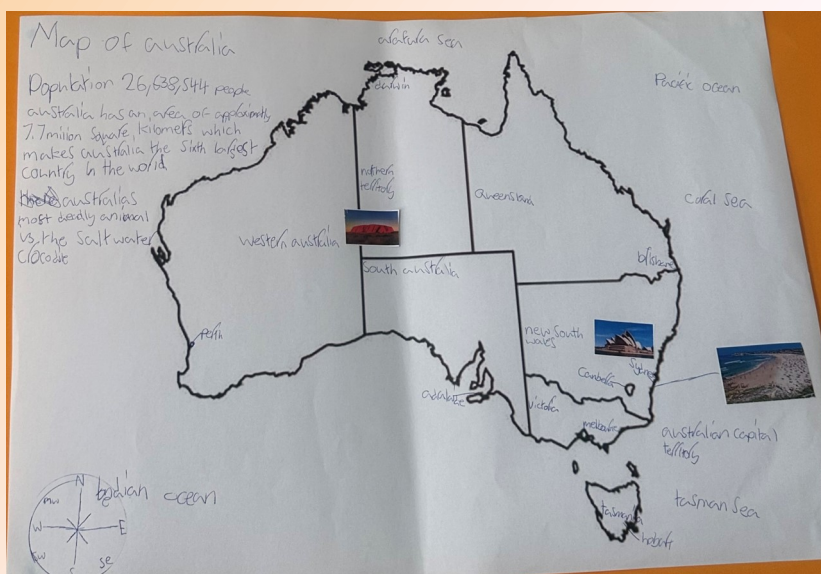 Map of australia
Popultation 26,638,544 people
australia has an area of approximently
7.7 million square, kilomets which
makes australia the sixth largest
country in the world
australias
most deadly animal
is the Salt water
Crocodile
arafura sea
Pacific ocean
darwin
nothern
territory
queensland
coral sea
western australia
south australia
brisbane
perth
new South
wales
Sydney
Canberra
adalaide
victoria
melbourne
australian capital
territory
tasman Sea
tasmania
hobart
indian ocean
N
nw
W
E
sw
se
S